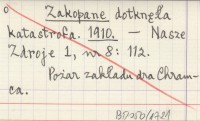 Zakopane dotknęła
katastrofa. 1910. — Nasze
Zdroje 1, nr 8: 112.
Pożar zakładu dra Chram-
ca.